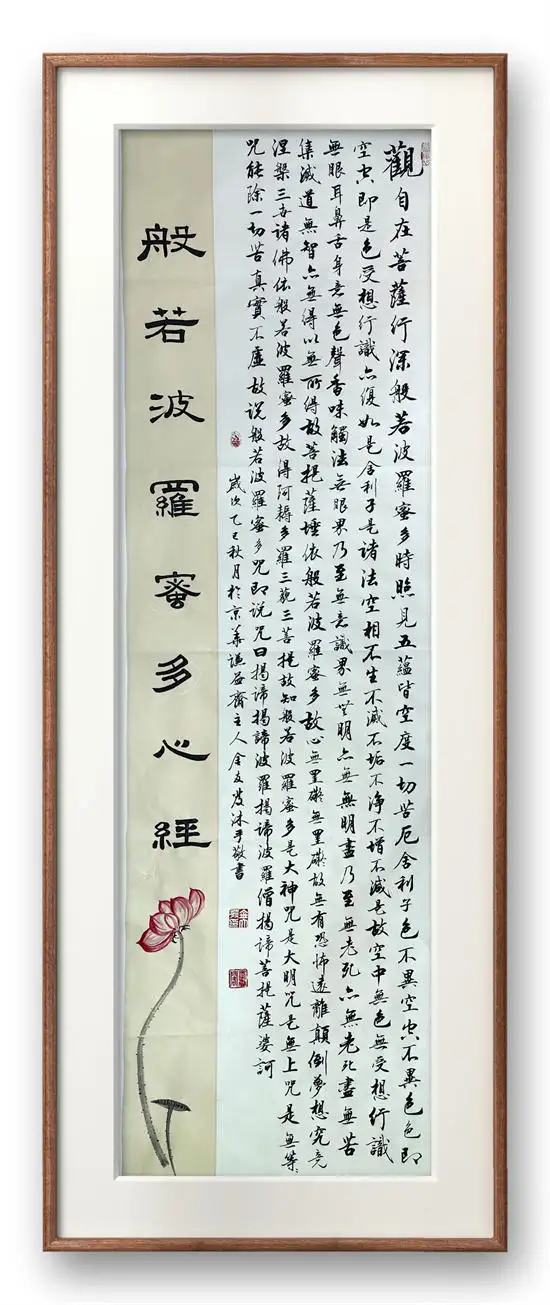 觀自在菩薩行深般若波羅蜜多時照見五蘊皆空度一切苦厄舍利子色不異空空不異色色即
空空即是色受想行識亦復如是舍利子是諸法空相不生不滅不垢不淨不增不減是故空中無色無受想行識
無眼耳鼻舌身意無色聲香味觸法無眼界乃至無意識界無無明亦無無明盡乃至無老死亦無老死盡無苦
集滅道無智亦無得以無所得故菩提薩埵依般若波羅蜜多故心無罣礙無罣礙故無有恐怖遠離顛倒夢想究竟
涅槃三世諸佛依般若波羅蜜多故得阿耨多羅三藐三菩提故知般若波羅蜜多是大神咒是大明咒是無上咒是無等〻
咒能除一切苦真實不虛故説般若波羅蜜多咒即説咒曰揭諦揭諦波羅揭諦波羅僧揭諦菩提薩婆訶
歲次乙巳秋月於京華謙谷齋主人金文發沐手敬書
般若波羅蜜多心經